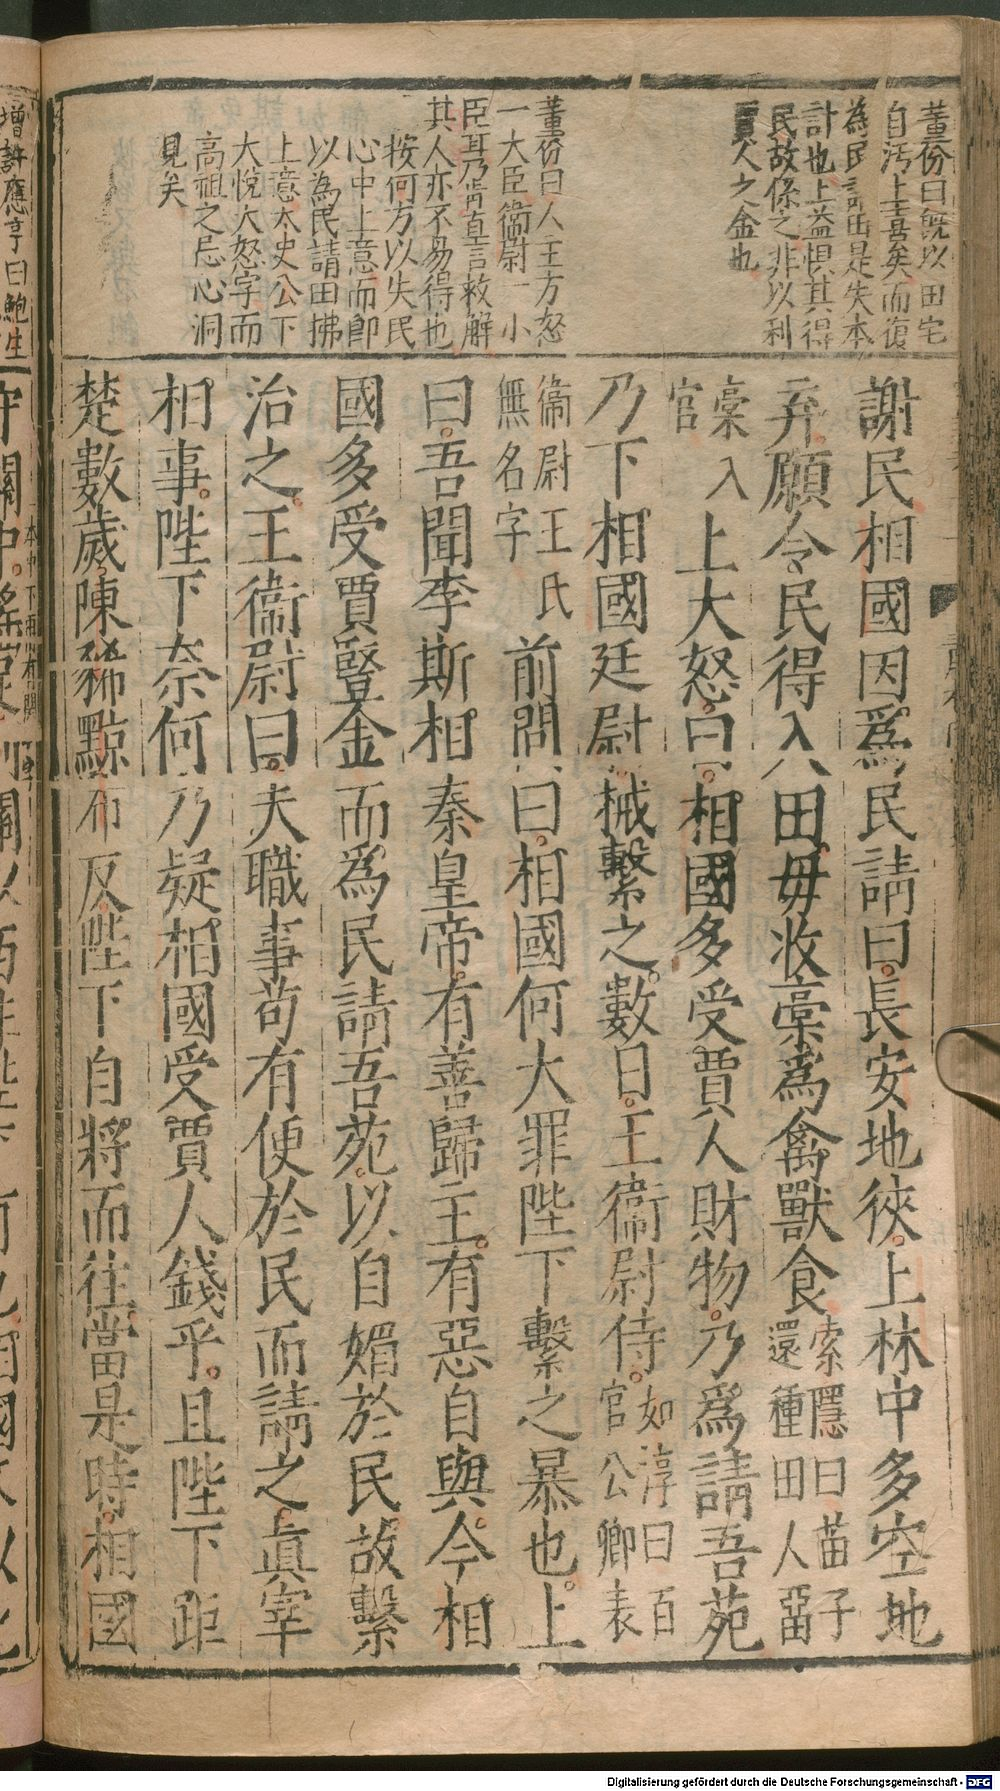 董份曰旣以田宅
自汚上喜矣而復
為民請田是失本
計也上益惧其得
民故係之非以利
賈人之金也
董份曰人主方怒
一大臣衞尉一小
臣耳乃肯直言救解
其人亦不易得也
按何方以失民
心中上意而卽
以為民請田拂
上意太史公下
大悅大怒字而
高祖之忌心洞
見矣
謝民相國因爲民請曰長安地狹上林中多空地
弃願令民得入田毋收稾爲禽獸食
索隱曰苗子
還種田人畱
稾入
官
上大怒曰相國多受賈人財物乃爲請吾苑
乃下相國廷尉械繫之數日王衞尉侍
如淳曰百
官公卿表
衞尉王氏
無名字
前問曰相國何大罪陛下繫之暴也上
曰吾聞李斯相秦皇帝有善歸主有惡自與今相
國多受賈豎金而爲民請吾苑以自媚於民故繫
治之王衞尉曰夫職事苟有便於民而請之眞宰
相事陛下奈何乃疑相國受賈人錢乎且陛下距
楚數歲陳豨黥布反陛下自將而往當是時相國
增許應亨曰鮑生
Digitalisierung gefördert durch die Deutsche Forschungsgemeinschaft - DFG